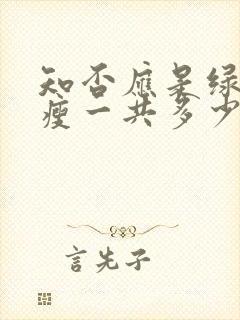 知否应是绿
瘦一共多少
言先子